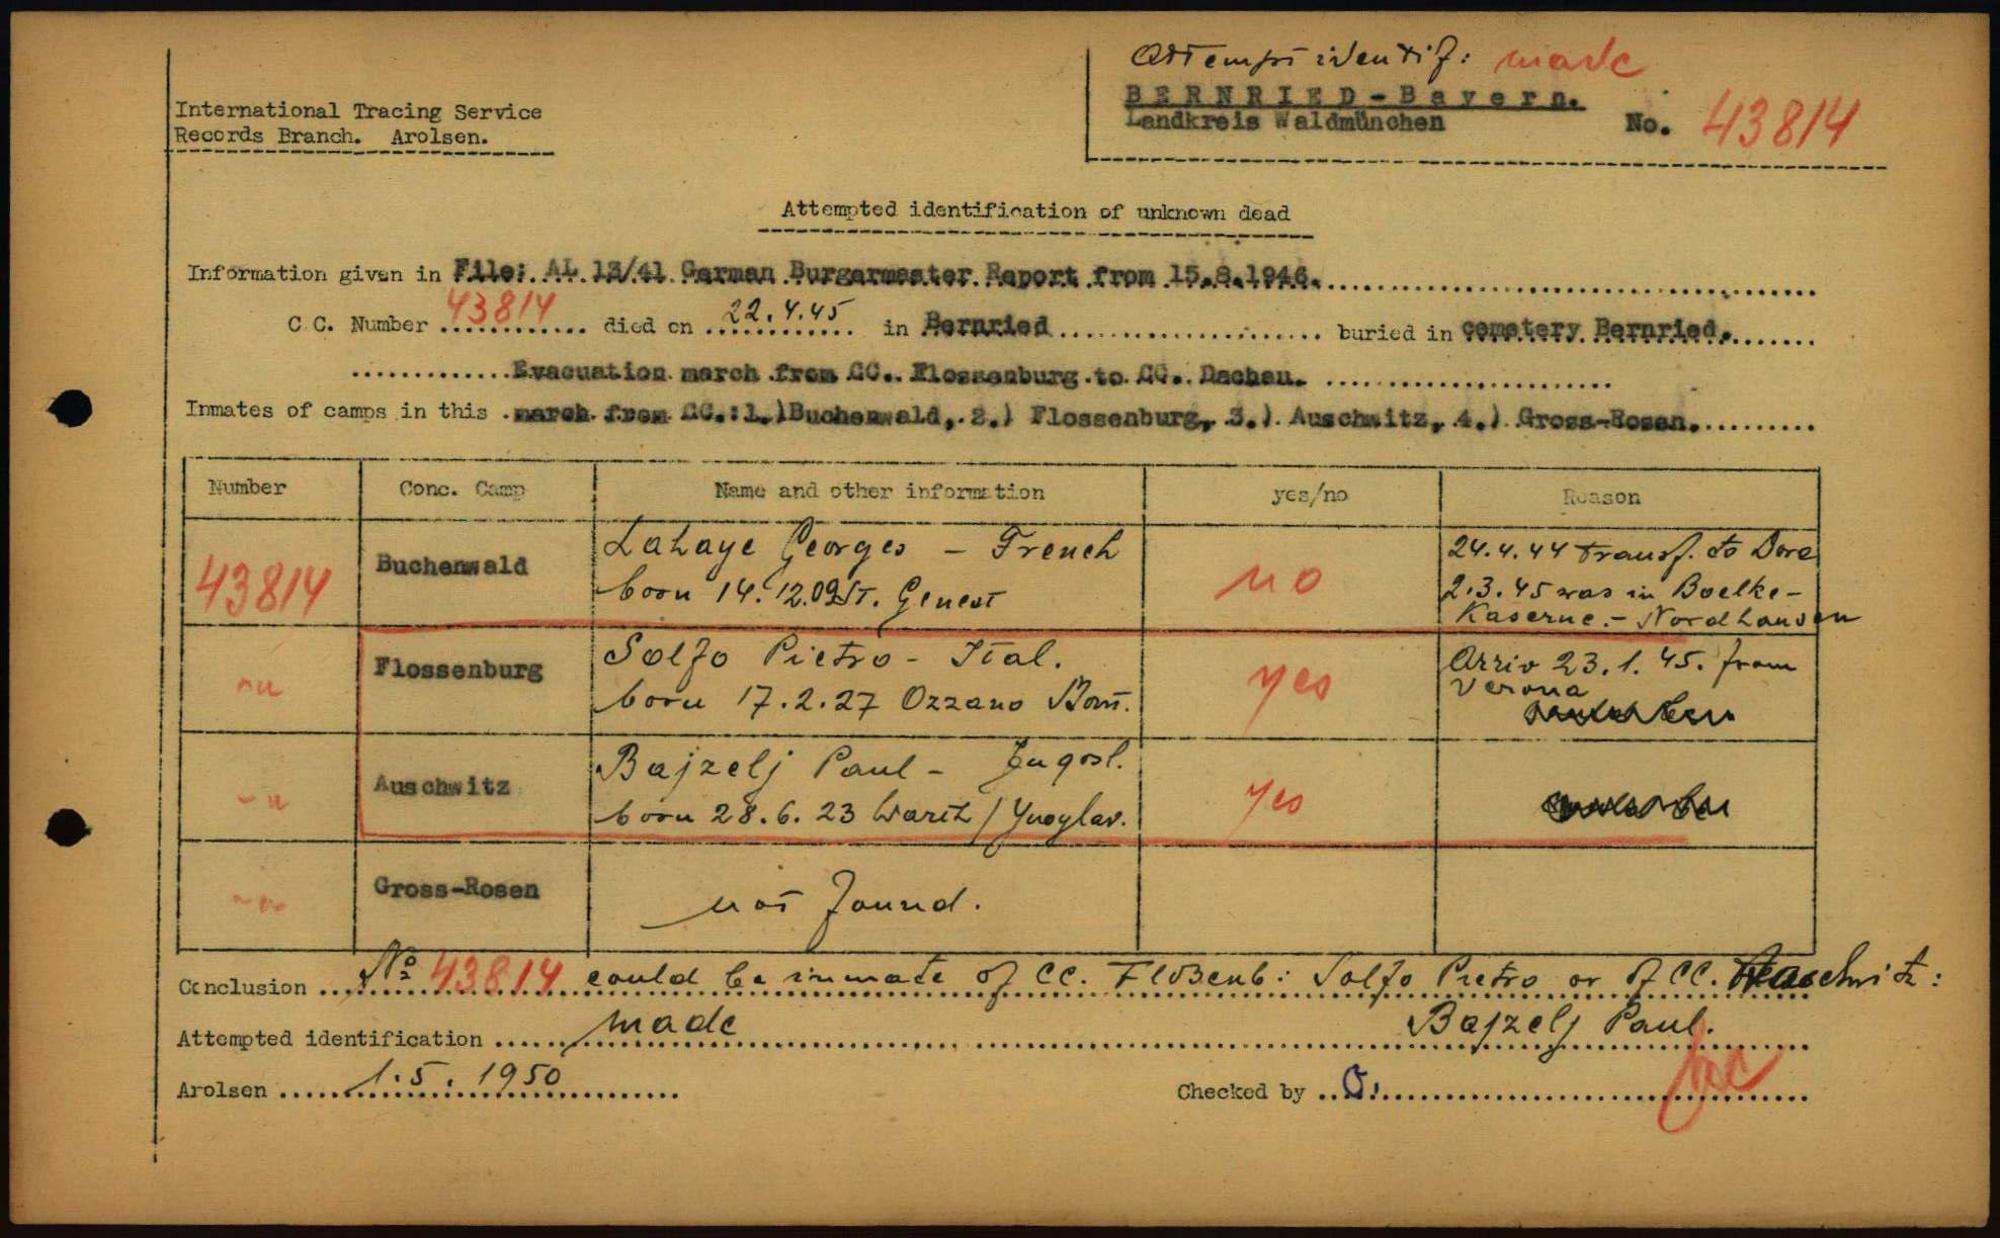 Attempt identif: made
International Tracing Service
Records Branch. Arolsen.
BERNRIED-Bayern.
Landkreis Waldmünchen
No. 43814
Attempted identification of unknown dead
Information given in File: AL 13/41 German Burgermester Report from 15.8.1946.
C C. Number 43814 died on 22.4.45 in Bernried buried in cemetery Bernried.
Evacuation march from CC. Flossenburg to CC. Dachau.
Inmates of camps in this march from CC.: 1.)Buchenwald, 2.) Flossenburg, 3.) Auschwitz, 4.) Gross-Rosen.
Number Conc. Camp Name and other information yes/no Reason
43814 Buchenwald Lahaye Georges - French no 24.4.44 transf. to Dora
born 14.12.09 St. Genest 2.3.45 was in Boelke-
Kaserne.- Nordhausen
-"- Flossenburg Solfo Pietro - Ital. yes Arriv 23.1.45. from
born 17.2.27 Ozzano Mom. Verona
-"- Auschwitz Bajzelj Paul - Jugosl. yes
born 28.6.23 Wartz / Yuoglav.
-"- Gross-Rosen not found.
Conclusion No 43814 could be inmate of CC. Floßenb: Solfo Pietro or of CC. Auschwitz:
Attempted identification made Bajzelj Paul.
Arolsen 1.5.1950 Checked by O.